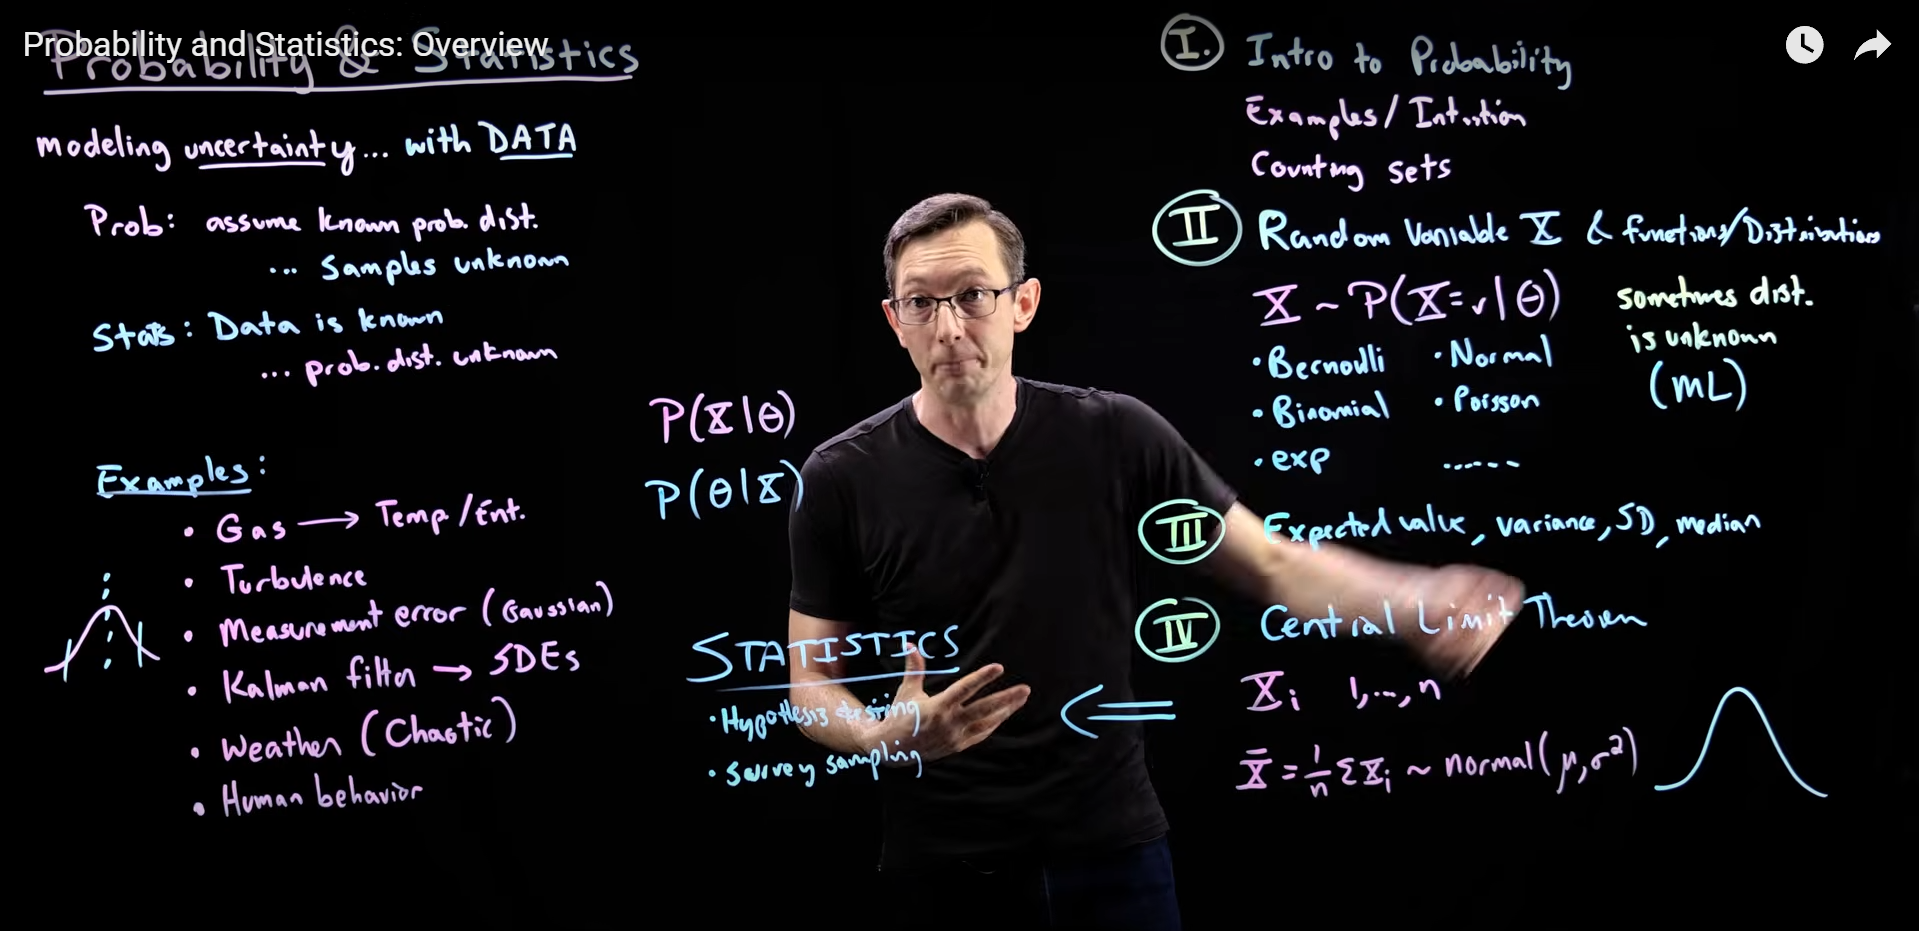 Probability and Statistics: Overview
Probability & Statistics
modeling uncertainty... with DATA
Prob: assume known prob. dist.
... samples unknown
Stats: Data is known
... prob. dist. unknown
Examples:
• Gas → Temp/Ent.
• Turbulence
• Measurement error (Gaussian)
• Kalman filter → SDEs
• Weather (Chaotic)
• Human behavior
P(X|θ)
P(θ|X)
STATISTICS
• Hypothesis testing
• Survey sampling
I. Intro to Probability
Examples/Intuition
Counting sets
II Random Variable X & functions/Distributions
X ~ P(X=r|θ)
• Bernoulli
• Binomial
• exp
• Normal
• Poisson
......
sometimes dist.
is unknown
(ML)
III Expected value, variance, SD, median
IV Central Limit Theorem
Xi 1,...,n
X̄ = 1/n Σ Xi ~ normal(μ,σ²)